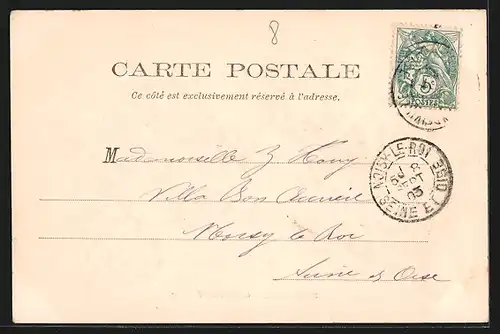 8
CARTE POSTALE
Ce côté est exclusivement réservé à l'adresse.
5c
POSTES
Mademoiselle
Villa Bon Accueil
Noisy le Roi
Seine & Oise
NOISY-LE-ROI
SEINE ET OISE